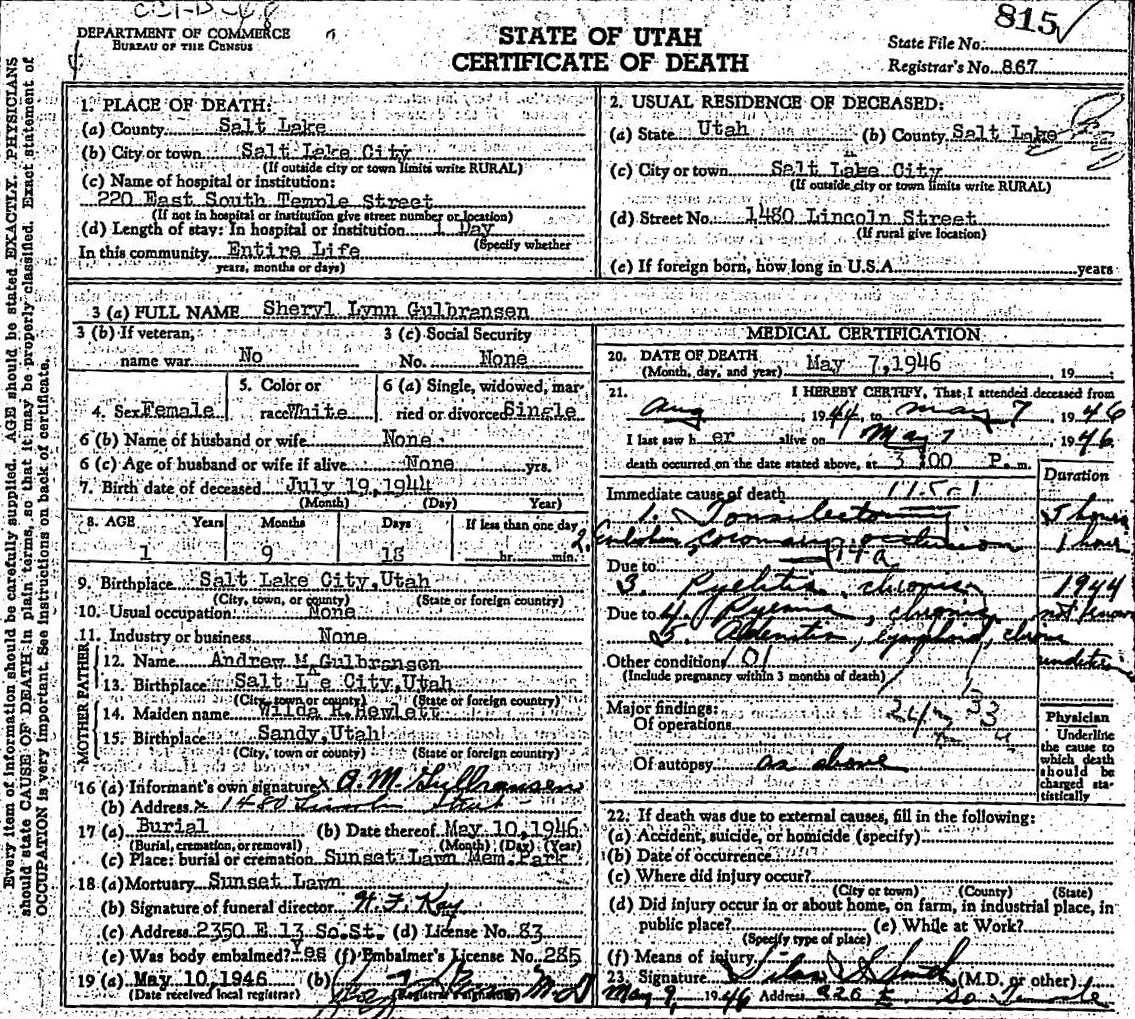 815
DEPARTMENT OF COMMERCE
BUREAU OF THE CENSUS
STATE OF UTAH
CERTIFICATE OF DEATH
State File No.
Registrar's No. 867
Every item of information should be carefully supplied. AGE should be stated EXACTLY. PHYSICIANS
should state CAUSE OF DEATH in plain terms, so that it may be properly classified. Exact statement of
OCCUPATION is very important. See instructions on back of certificate.
1. PLACE OF DEATH:
(a) County Salt Lake
(b) City or town Salt Lake City
(If outside city or town limits write RURAL)
(c) Name of hospital or institution:
220 East South Temple Street
(If not in hospital or institution give street number or location)
(d) Length of stay: In hospital or institution 1 Day
(Specify whether
In this community Entire Life
years, months or days)
2. USUAL RESIDENCE OF DECEASED:
(a) State Utah (b) County Salt Lake
(c) City or town Salt Lake City
(If outside city or town limits write RURAL)
(d) Street No. 1480 Lincoln Street
(If rural give location)
(e) If foreign born, how long in U.S.A. years
3 (a) FULL NAME Sheryl Lynn Gulbransen
3 (b) If veteran, 3 (c) Social Security
name war No No. None
4. Sex Female 5. Color or race White 6 (a) Single, widowed, married or divorced Single
6 (b) Name of husband or wife None
6 (c) Age of husband or wife if alive None yrs.
7. Birth date of deceased July 19, 1944
(Month) (Day) Year)
8. AGE Years Months Days If less than one day
1 9 18 hr. min.
9. Birthplace Salt Lake City, Utah
(City, town, or county) (State or foreign country)
10. Usual occupation None
11. Industry or business None
FATHER
12. Name Andrew M Gulbransen
13. Birthplace Salt L e City, Utah
(City, town or county) (State or foreign country)
MOTHER
14. Maiden name Wilda R. Hewlett
15. Birthplace Sandy, Utah
(City, town or county) (State or foreign country)
16 (a) Informant's own signature x A. M. Gulbransen
(b) Address x 1480 Lincoln Street
17 (a) Burial (b) Date thereof May 10, 1946
(Burial, cremation, or removal) (Month) (Day) (Year)
(c) Place: burial or cremation Sunset Lawn Mem. Park
18 (a) Mortuary Sunset Lawn
(b) Signature of funeral director H. F. Kay
(c) Address 2350 E 13 So. St. (d) License No. 83
(e) Was body embalmed? Yes (f) Embalmer's License No. 285
19 (a) May 10, 1946 (b) M.D
(Date received local registrar) (Registrar's signature)
MEDICAL CERTIFICATION
20. DATE OF DEATH May 7, 1946
(Month, day, and year) , 19
21. I HEREBY CERTIFY, That I attended deceased from
Aug 1944 to May 7 1946
I last saw her alive on May 7, 1946
death occurred on the date stated above, at 3:00 P. m.
Duration
Immediate cause of death
1. Tonsilectomy 5 hours
2. Embolism, coronary occlusion 1 hour
94a
Due to
3. Pyelitis, chronic 1944
Due to 4. chronic not known
5. lymphoid, chronic
Other conditions 101
(Include pregnancy within 3 months of death)
Major findings:
Of operations
Of autopsy as above
Physician
Underline the cause to which death should be charged statistically
22. If death was due to external causes, fill in the following:
(a) Accident, suicide, or homicide (specify)
(b) Date of occurrence
(c) Where did injury occur?
(City or town) (County) (State)
(d) Did injury occur in or about home, on farm, in industrial place, in
public place? (e) While at Work?
(Specify type of place)
(f) Means of injury
23. Signature Silas S Smith (M.D. or other)
May 9, 1946 Address 226 E So Temple